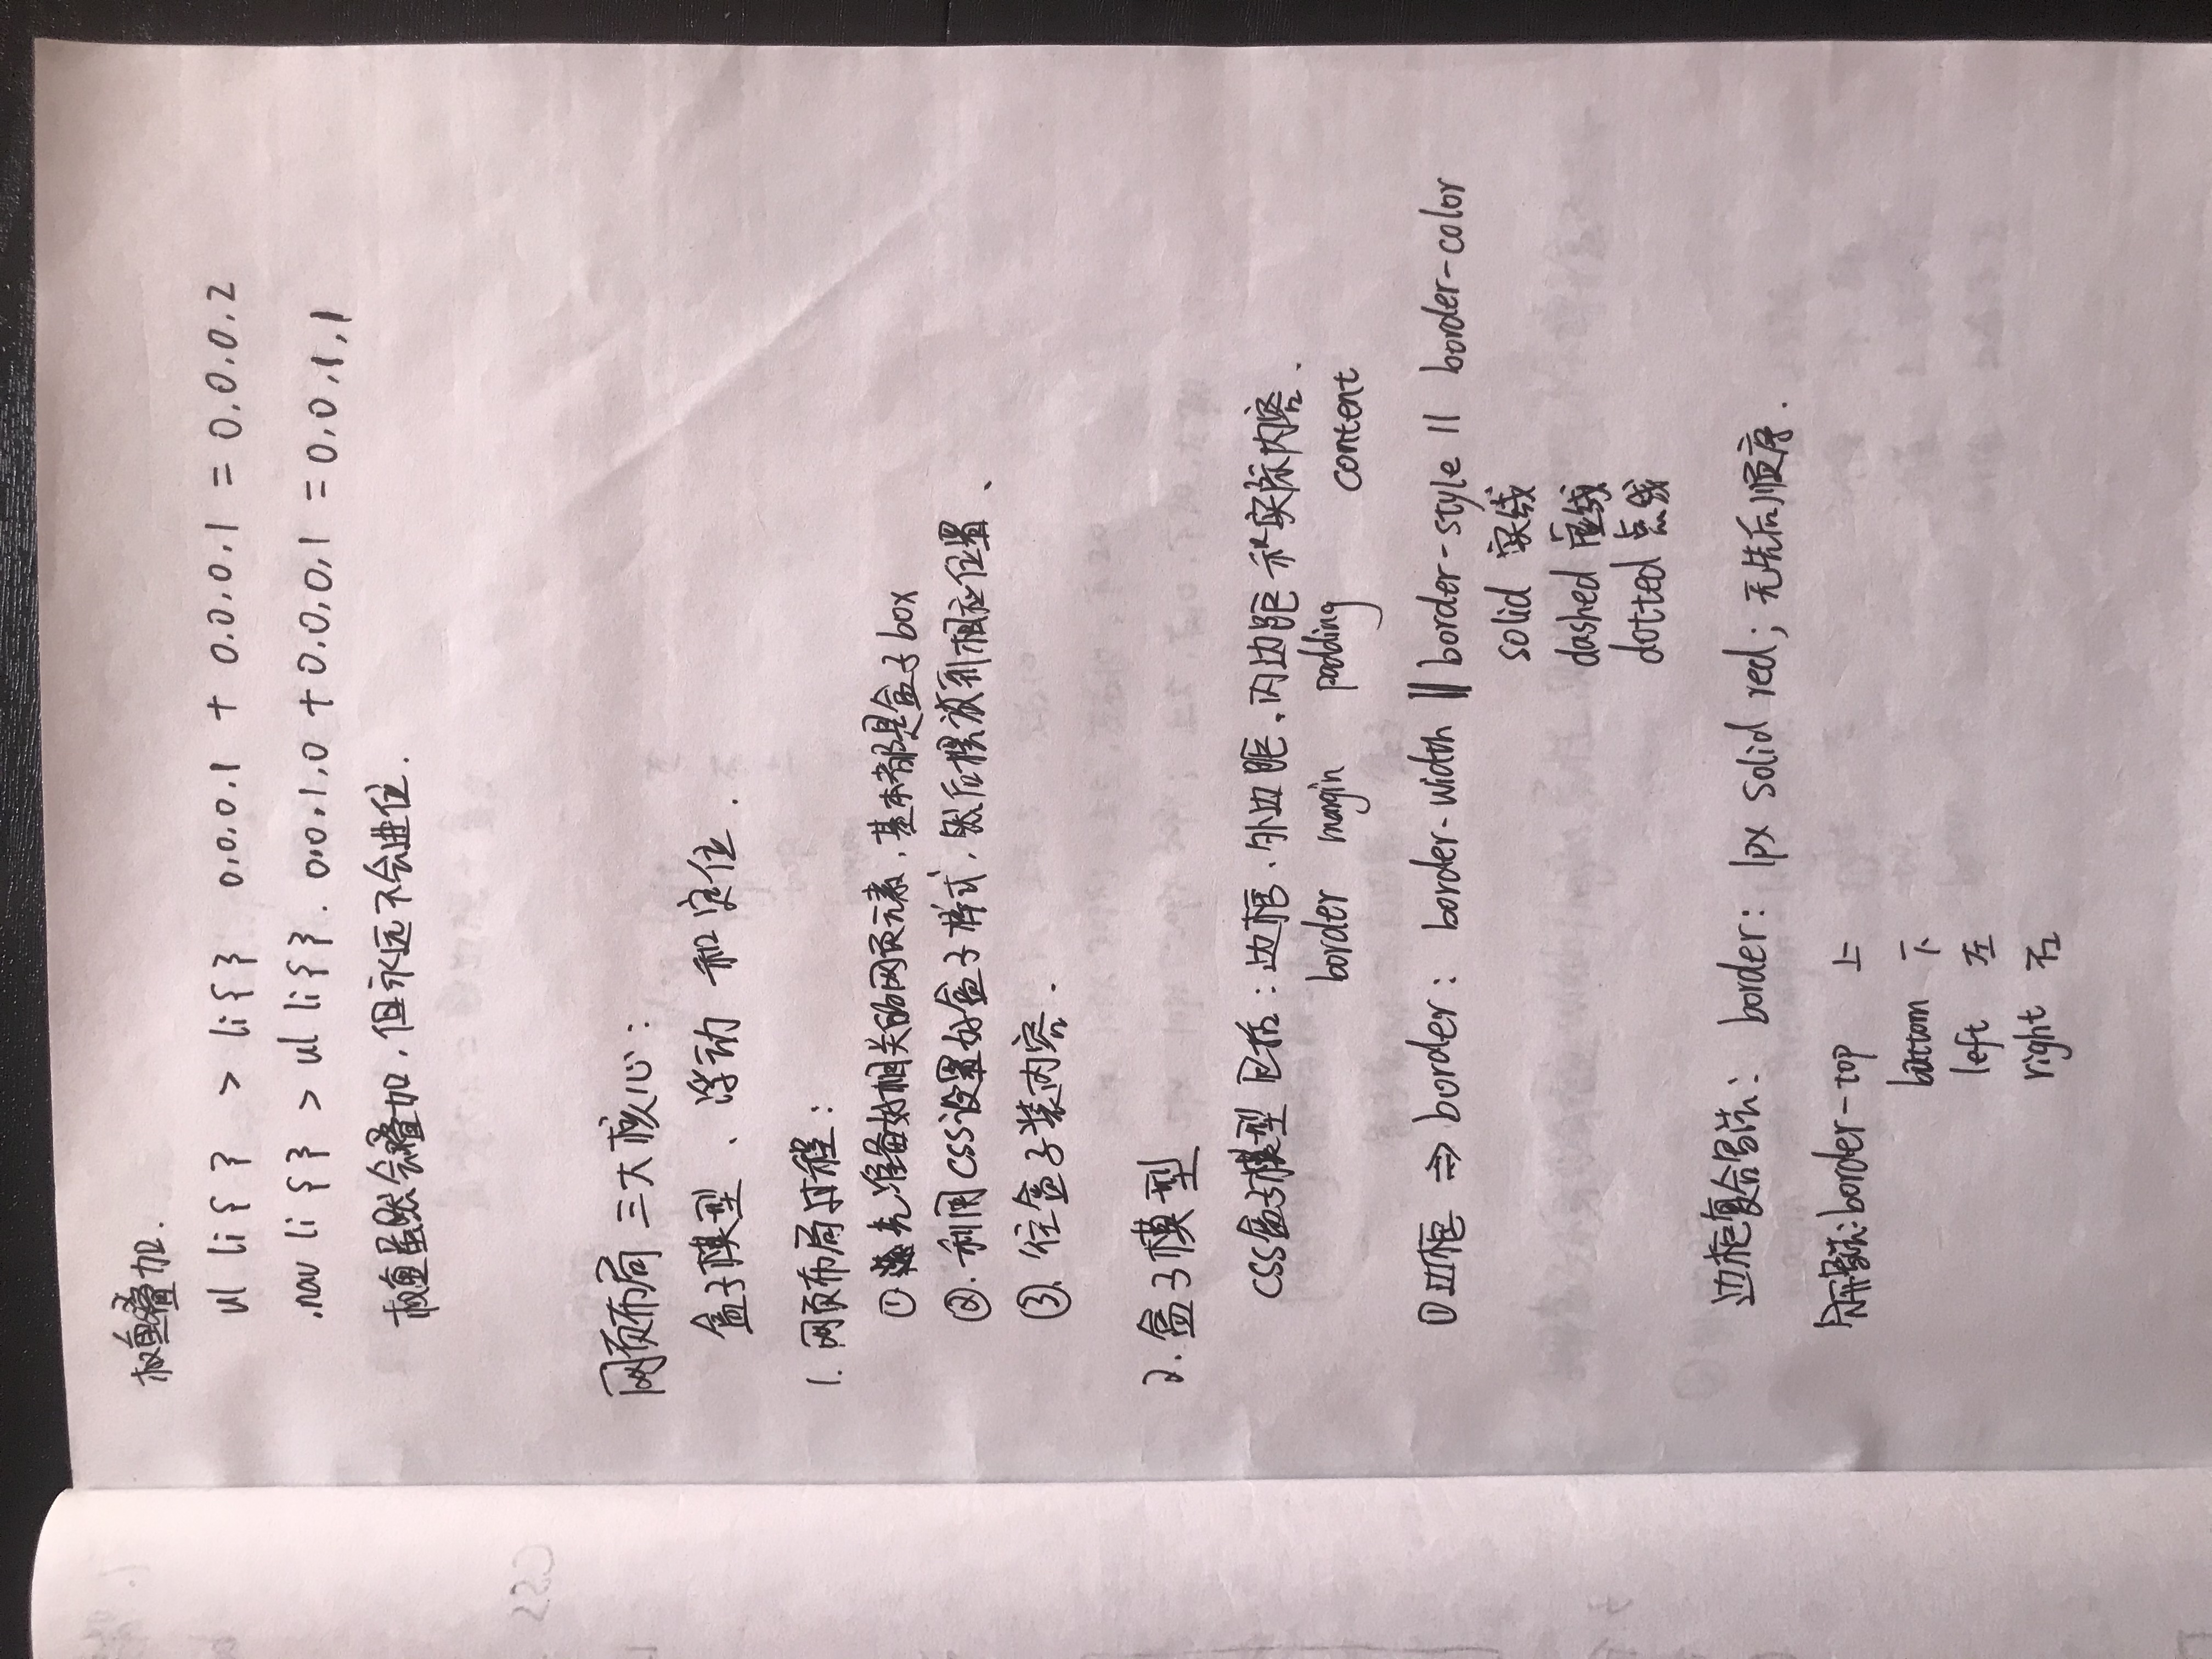 权重叠加.
ul li { } > li { } 0.0.0.1 + 0.0.0.1 = 0.0.0.2
.nav li { } > ul li { }. 0.0.1.0 + 0.0.0.1 = 0.0.1.1
权重虽然会叠加,但永远不会进位.
网页布局 三大核心:
盒子模型、浮动 和定位.
1. 网页布局过程:
① 先准备好相关的网页元素,基本都是盒子box
②. 利用CSS设置好盒子样式,然后摆放到相应位置、
③. 往盒子装内容.
2. 盒子模型
CSS盒子模型 包括: 边框、外边距、内边距 和实际内容.
border margin padding content
①边框 ⇒ border: border-width || border-style || border-color
solid 实线
dashed 虚线
dotted 点线
边框复合写法: border: 1px solid red; 无先后顺序.
分开写法: border-top 上
bottom 下
left 左
right 右
CSS